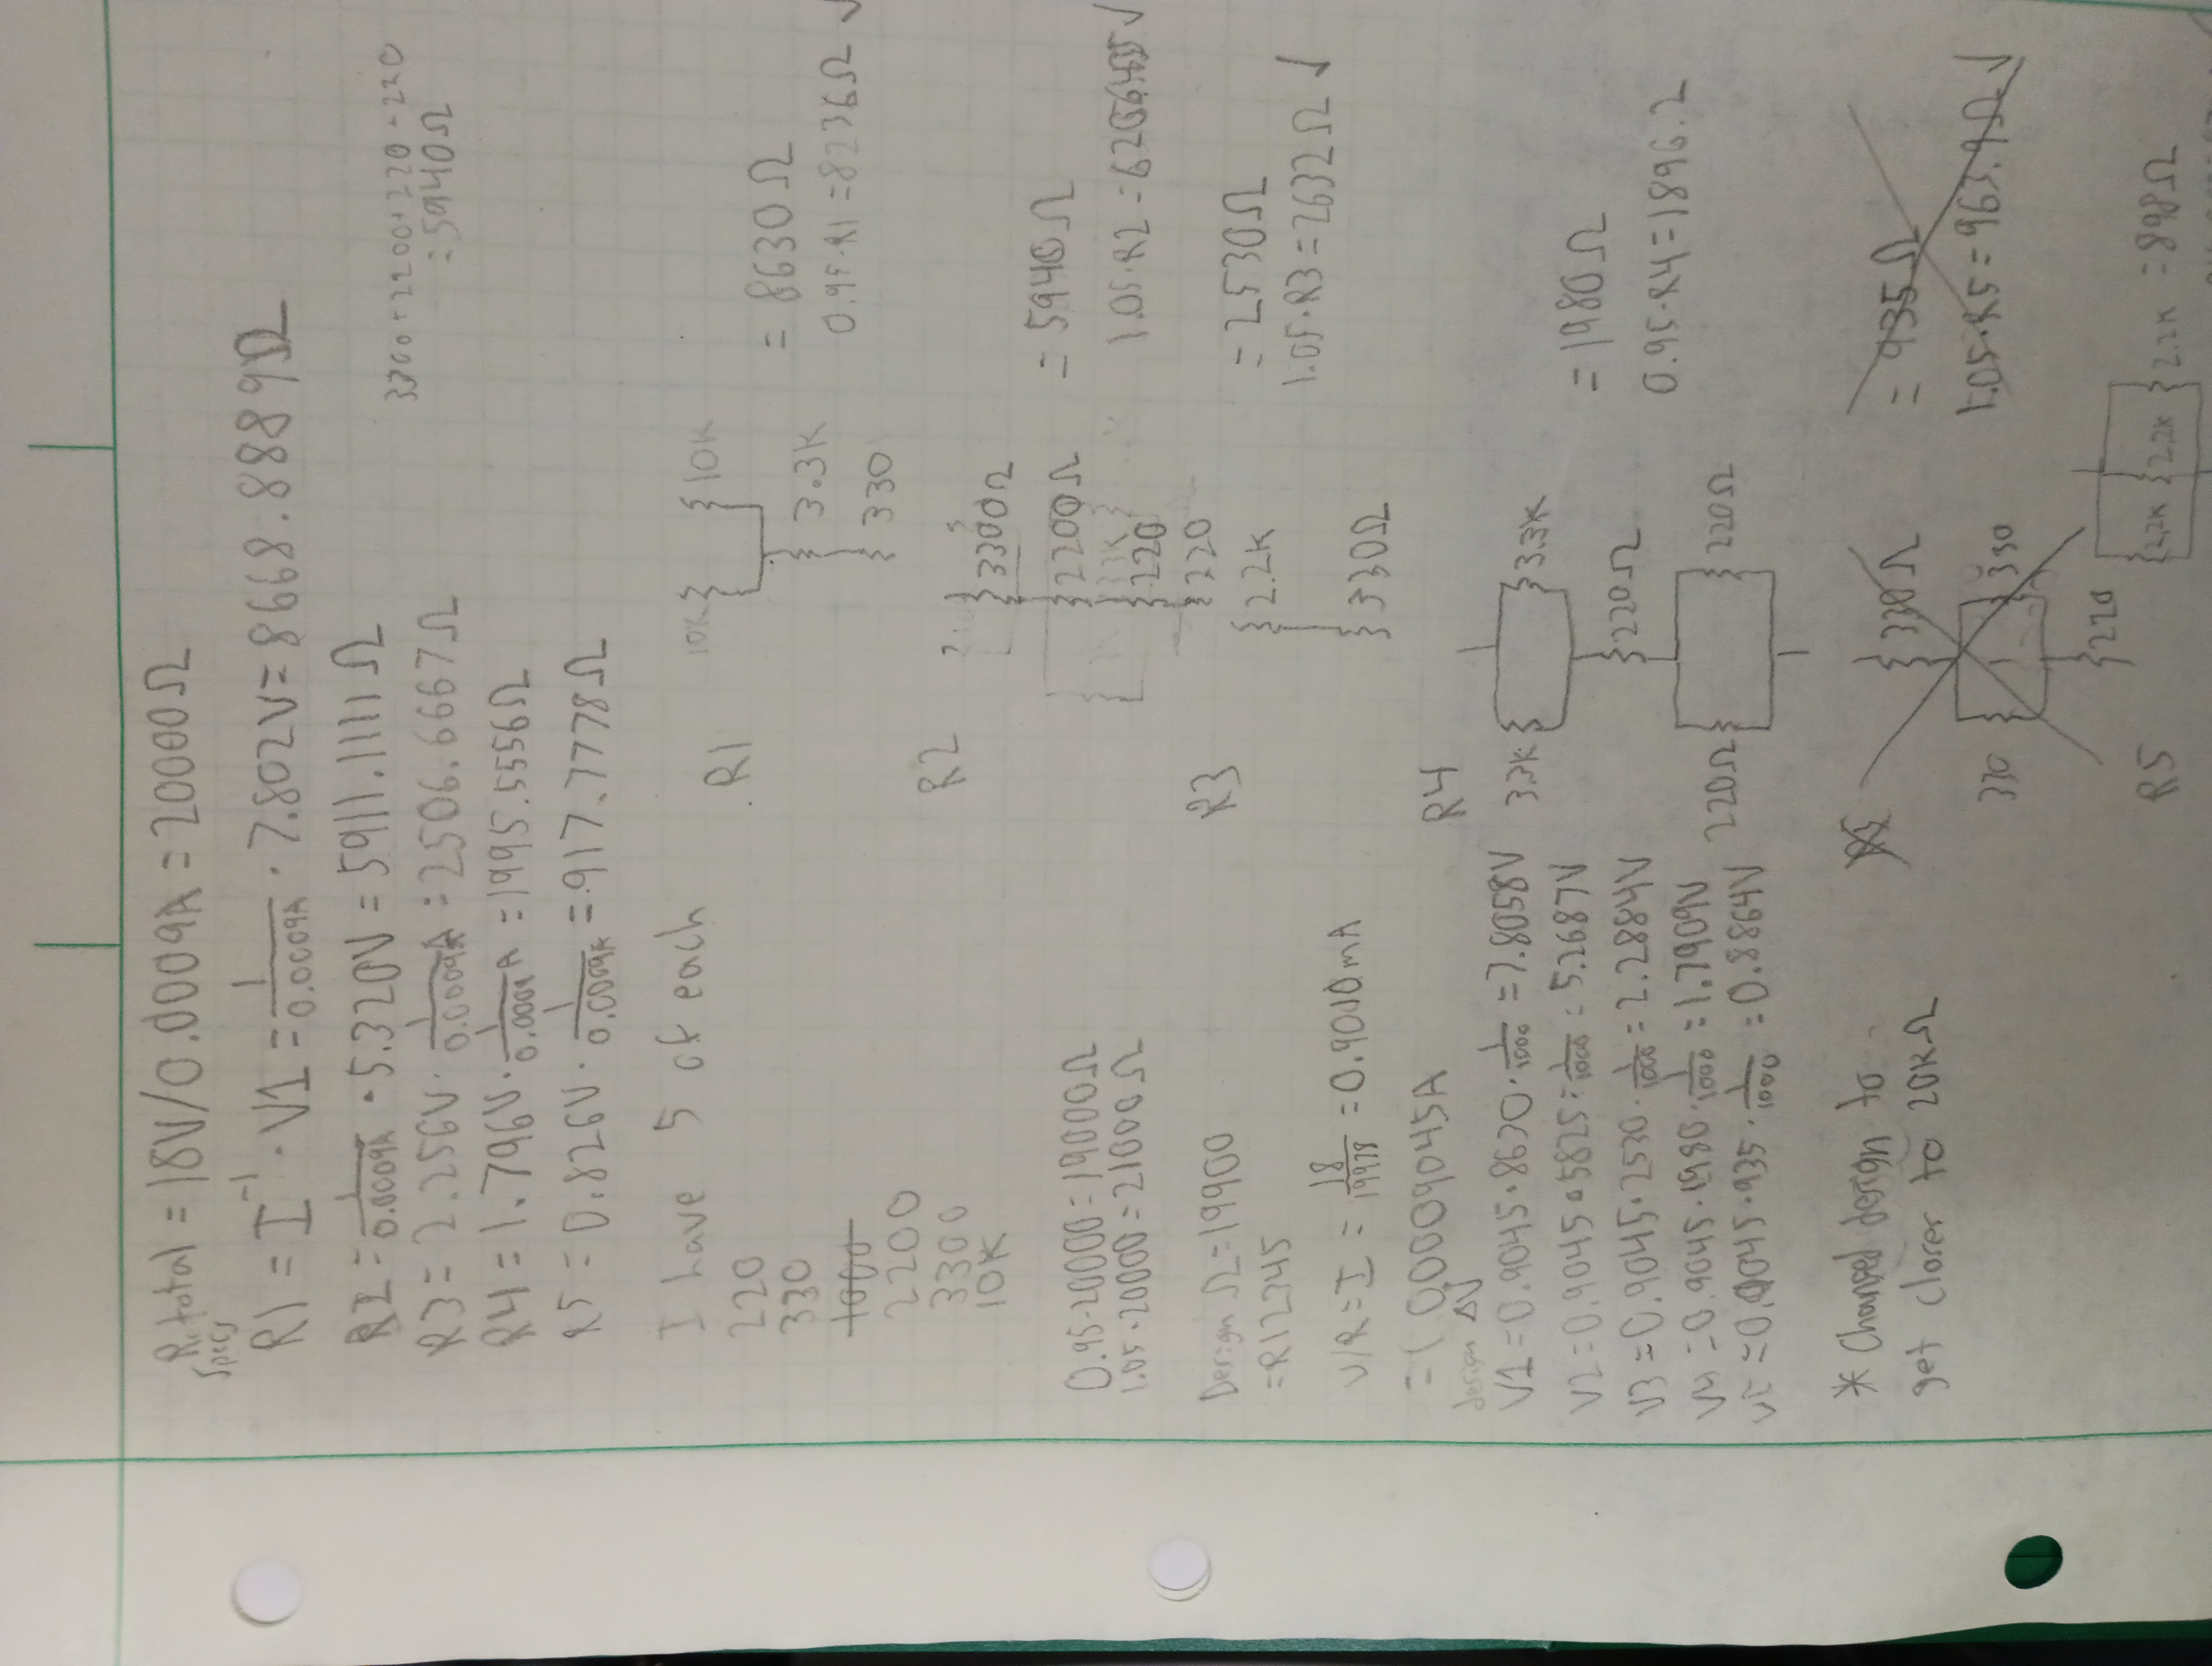 R total = 18V/0.0009A = 20000Ω
Specs
R1 = I⁻¹ · V1 = 1/0.0009A · 7.802V = 8668.8889Ω
R2 = 1/0.0009A · 5.320V = 5911.1111Ω
3300 + 2200 + 220 + 220
= 5940Ω
R3 = 2.256V · 1/0.0009A = 2506.6667Ω
R4 = 1.796V · 1/0.0009A = 1995.5556Ω
R5 = 0.826V · 1/0.0009A = 917.7778Ω
I have 5 of each
220
330
1000
2200
3300
10K
0.95·20000 = 19000Ω
1.05·20000 = 21000Ω
Design Ω = 19900
= R12345
V/R = I = 18/19978 = 0.9010mA
= ( 0.0009045A
design ΔV
V1 = 0.9045·8630·1/1000 = 7.8058V
V2 = 0.9045·5825·1/1000 = 5.2687V
V3 = 0.9045·2530·1/1000 = 2.2884V
V4 = 0.9045·1980·1/1000 = 1.7909V
= 0.9045·935·1/1000 = 0.8864V
* Changed design to
get closer to 20KΩ
R1
10K 10K
3.3K
330
= 8630Ω
0.95·R1 = 8236Ω ✓
R2
3300Ω
2200Ω
220
220
= 5940Ω
1.05·R2 =
R3
2.2K
330Ω
= 2530Ω
1.05·R3 = 2632Ω ✓
R4
3.3K 3.3K
220Ω
220Ω 220Ω
= 1980Ω
0.95·R4 = 1896.2
R5
330Ω
330 330
220
= 935Ω
1.05·R5 = 963.9Ω ✓
R5
2.2K 2.2K 2.2K = 898Ω